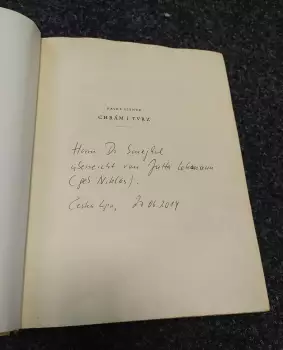 PAVEL EISNER
CHRÁM I TVRZ
Herrn Dr. Smejkal
überreicht von Jutta Lehmann
(geb Nikler).
Česka Lípa, 20.06.2014